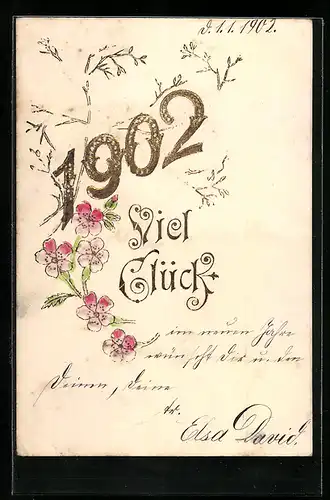 d. 1.1. 1902.
1902
Viel
Glück
im neuen Jahre
wünscht Dir u. den
Deinen, Deine
tr.
Elsa David.